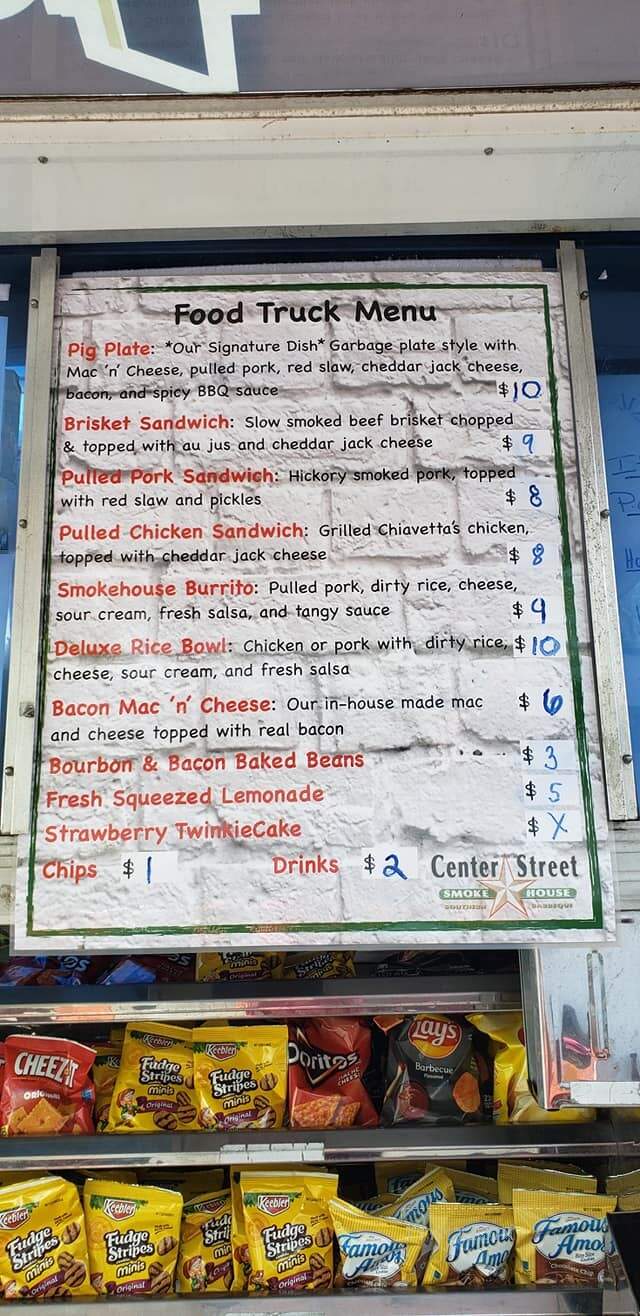 Food Truck Menu
Pig Plate: *Our Signature Dish* Garbage plate style with
Mac 'n' Cheese, pulled pork, red slaw, cheddar jack cheese,
bacon, and spicy BBQ sauce $10
Brisket Sandwich: Slow smoked beef brisket chopped
& topped with au jus and cheddar jack cheese $9
Pulled Pork Sandwich: Hickory smoked pork, topped
with red slaw and pickles $8
Pulled Chicken Sandwich: Grilled Chiavetta's chicken,
topped with cheddar jack cheese $8
Smokehouse Burrito: Pulled pork, dirty rice, cheese,
sour cream, fresh salsa, and tangy sauce $9
Deluxe Rice Bowl: Chicken or pork with dirty rice, $10
cheese, sour cream, and fresh salsa
Bacon Mac 'n' Cheese: Our in-house made mac $6
and cheese topped with real bacon
Bourbon & Bacon Baked Beans $3
Fresh Squeezed Lemonade $5
Strawberry TwinkieCake $X
Chips $1 Drinks $2 Center Street
SMOKE HOUSE
SOUTHERN BARBEQUE
minis
Original
CHEEZ-IT
ORIGINAL
Keebler
Fudge
Stripes
minis
Original
Keebler
Fudge
Stripes
minis
Original
Doritos
NACHO
CHEESE
Lay's
Barbecue
Keebler
Fudge
Stripes
minis
Original
Keebler
Fudge
Stripes
minis
Original
Keebler
Fudge
Stripes
minis
Original
Famous
Amos
Famous
Amos
Famous
Amos